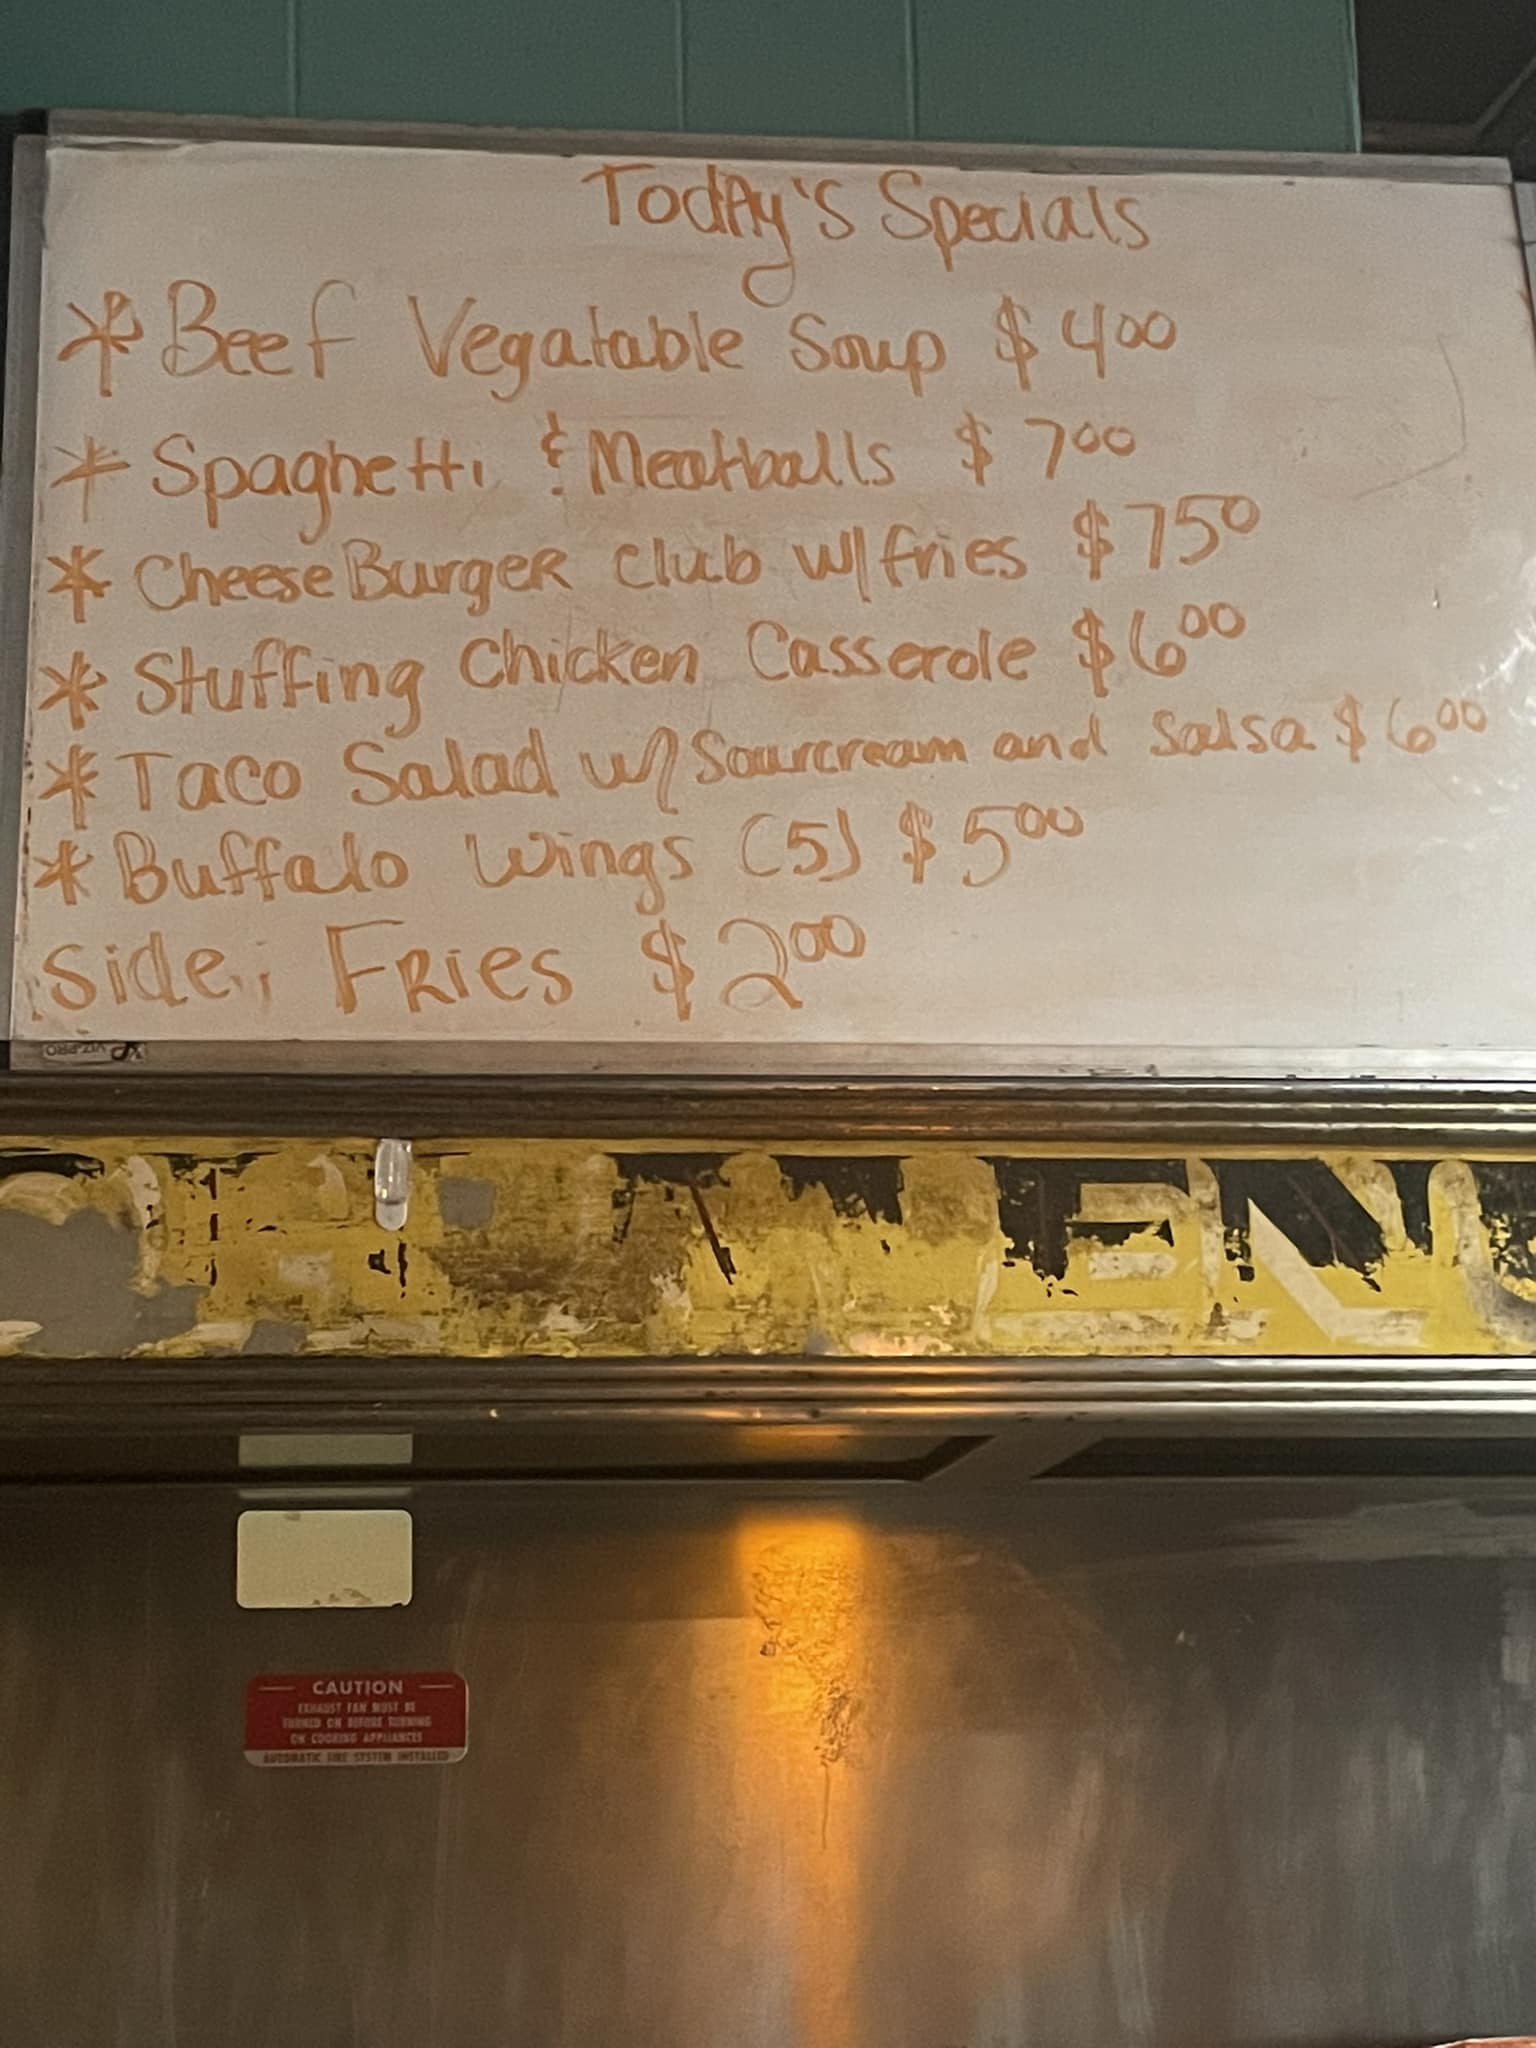 Today's Specials
* Beef Vegatable Soup $400
* Spaghetti & Meatballs $700
* CheeseBurgeR club w/fries $750
* Stuffing Chicken Casserole $600
* Taco Salad w/ Sourcream and Salsa $600
* Buffalo Wings (5) $500
Side; FRies $200
VIZ-PRO
CAUTION
EXHAUST FAN MUST BE
TURNED ON BEFORE TURNING
ON COOKING APPLIANCES
AUTOMATIC FIRE SYSTEM INSTALLED